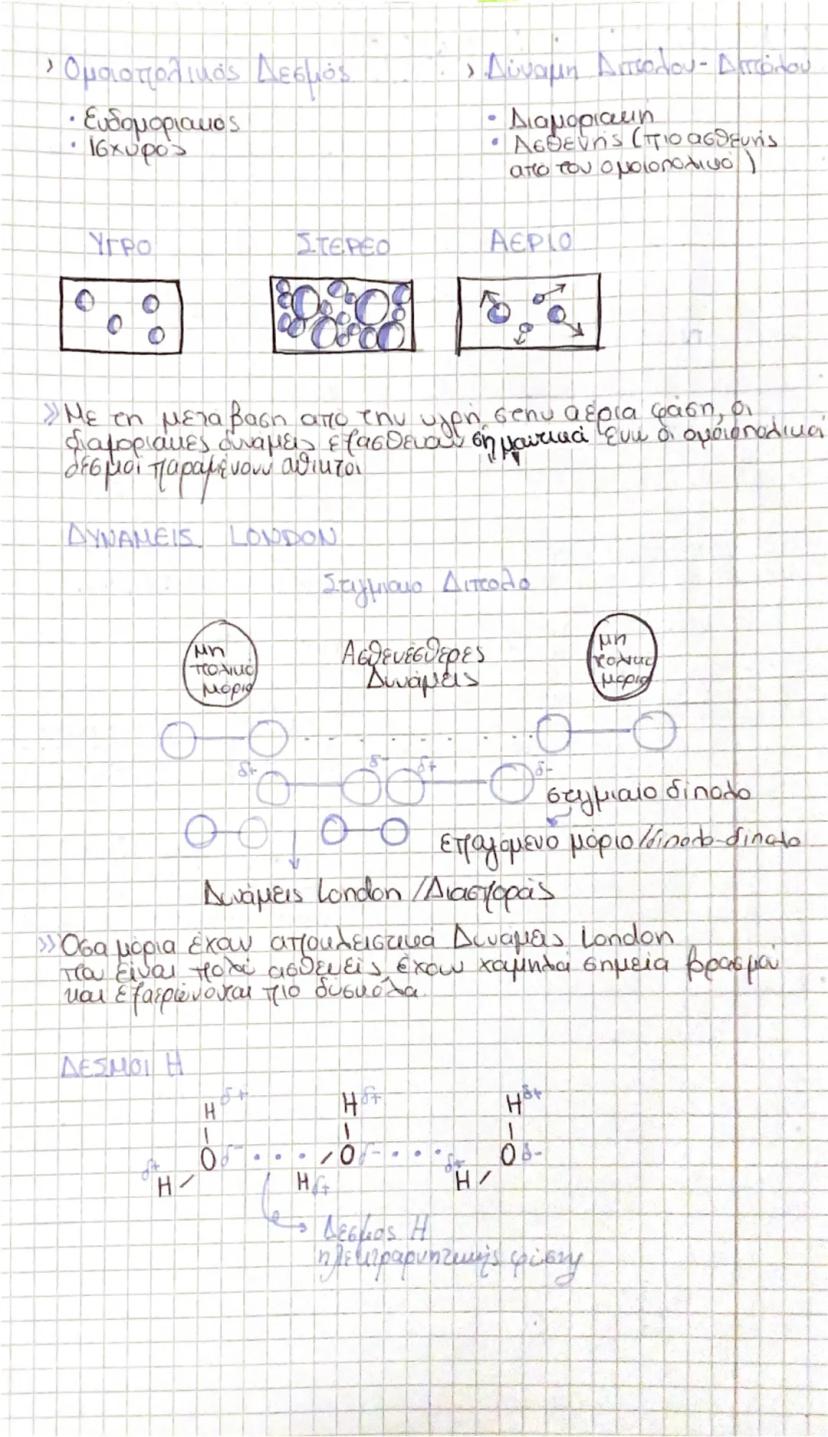 › Ομοιοπολικός Δεσμός
• Ενδομοριακος
• Ισχυρός
› Δύναμη Διπολου-Διπόλου
• Διαμοριακη
• Ασθενής (πιο ασθενής
απο τον ομοιοπολικο)
ΥΓΡΟ ΣΤΕΡΕΟ ΑΕΡΙΟ
» Με τη μεταβαση απο την υγρή στην αέρια φάση, οι
διαμοριακες δυναμεις εξασθενουν σημαντικά ενω οι ομοιοπολικοί
δεσμοί παραμένουν αθικτοι
ΔΥΝΑΜΕΙΣ LONDON
Στιγμιαιο Διπολο
μη
πολικο
μόριο
Ασθενέστερες
Δυνάμεις
μη
πολικο
μόριο
δ+ δ- δ+ δ-
στιγμιαιο δίπολο
επαγόμενο μόριο/διπολο-διπολο
Δυνάμεις London /Διασποράς
» Οσα μόρια έχουν αποκλειστικά Δυναμεις London
που είναι πολύ ασθενείς, έχουν χαμηλά σημεία βρασμού
και εξαερώνονται πιο δυσκολα.
ΔΕΣΜΟΙ Η
H δ+ H δ+ H δ+
δ+ O δ- O δ- δ+ O δ-
H H δ+ H
Δεσμος Η
ηλεκτραρνητικης φύσης